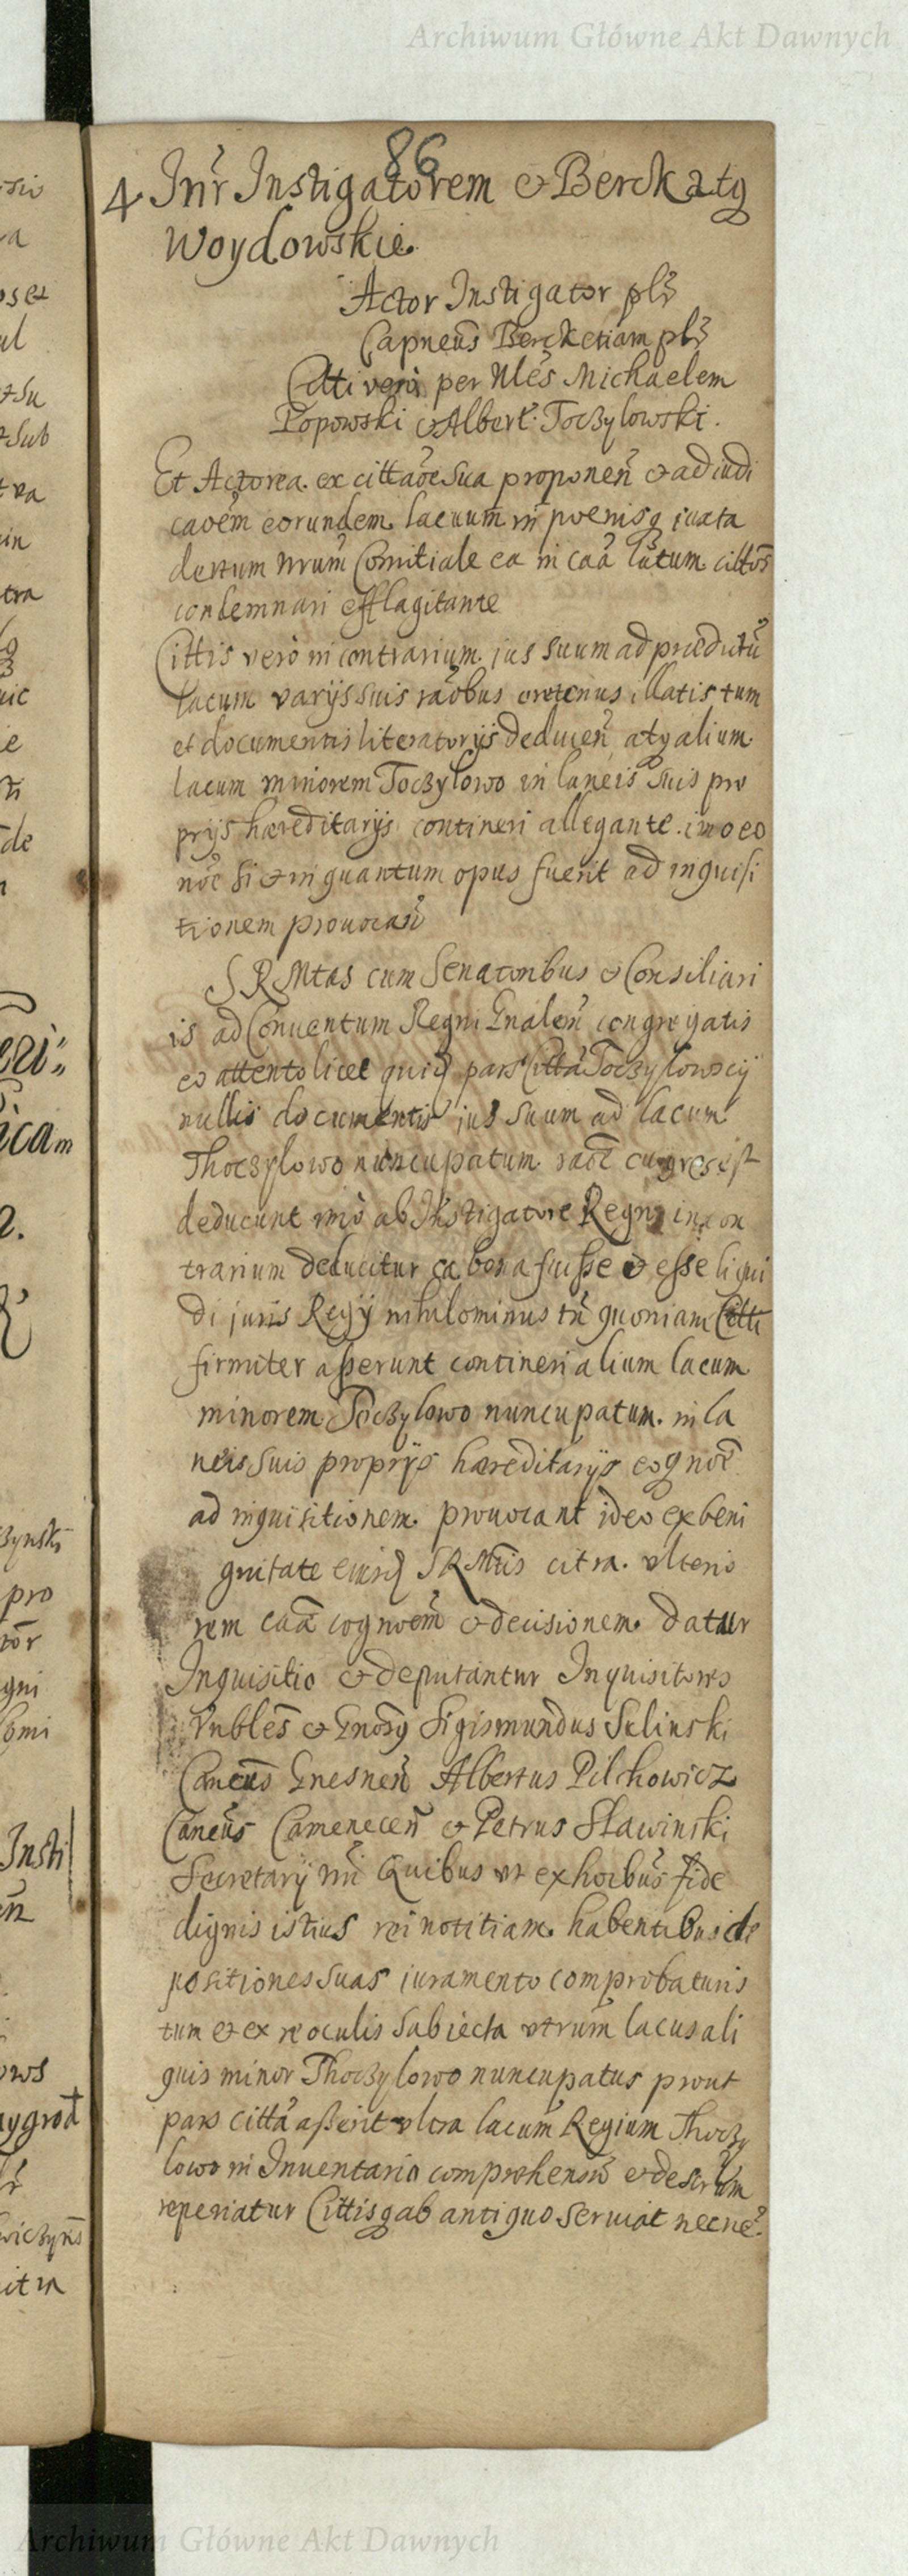 Archiwum Główne Akt Dawnych
86
4 Inr Instigatorem & Berck atq
Woydowskie
Actor Instigator pls
Capneus Berck etiam pls
Citti vero per Nles Michaelem
Popowski & Albert: Toczylowski.
Et Actorea ex cittaoe sua proponen & adiudi
caoem eorundem lacuum in poenisq iuxta
Comitiale ea in caa latum cittos
condemnari efflagitante
Cittis vero in contrarium jus suum ad praedictu
lacum varijs suis raobus oretenus illatis tum
et documentis literatorijs deducen atq alium
lacum minorem Toczylowo in laneis suis pro
prijs haereditarijs contineri allegante. imo eo
noe si & in quantum opus fuerit ad inquisi
tionem prouocan
S R Mtas cum Senatoribus & Consiliari
is ad Conuentum Regni Gnalem congregatis
eo attento licet quid pars Citta Toczylowscy
nullis documentis jus suum ad lacum
Thoczylowo nuncupatum raoe cuius res est
deducunt imo ab Instigatore Regni in con
trarium deducitur ea bona fuisse & esse liqui
di juris Regij nihilominus tn quoniam Citti
firmiter asserunt contineri alium lacum
minorem Toczylowo nuncupatum in la
neis suis proprijs haereditarijs eoq noe
ad inquisitionem prouocant ideo ex beni
gnitate eiusd S R Mtis citra vlterio
rem caa cognoem & decisionem datur
Inquisitio & deputantur Inquisitores
Vnbles & Gnosq Sigismundus Sulinski
Caneus Gnesnen Albertus Pilchowicz
Caneus Camenecen & Petrus Slawinski
Secretarij nri Quibus vt ex hoibus fide
dignis istius rei notitiam habentibus de
positiones suas iuramento comprobaturis
tum & ex re oculis subiecta vtrum lacus ali
quis minor Thoczylowo nuncupatus prout
pars citta asserit vltra lacum Regium Thoczy
lowo in Inuentario comprehensu & descriptum
reperiatur Cittisq ab antiquo seruiat necne.
Archiwum Główne Akt Dawnych